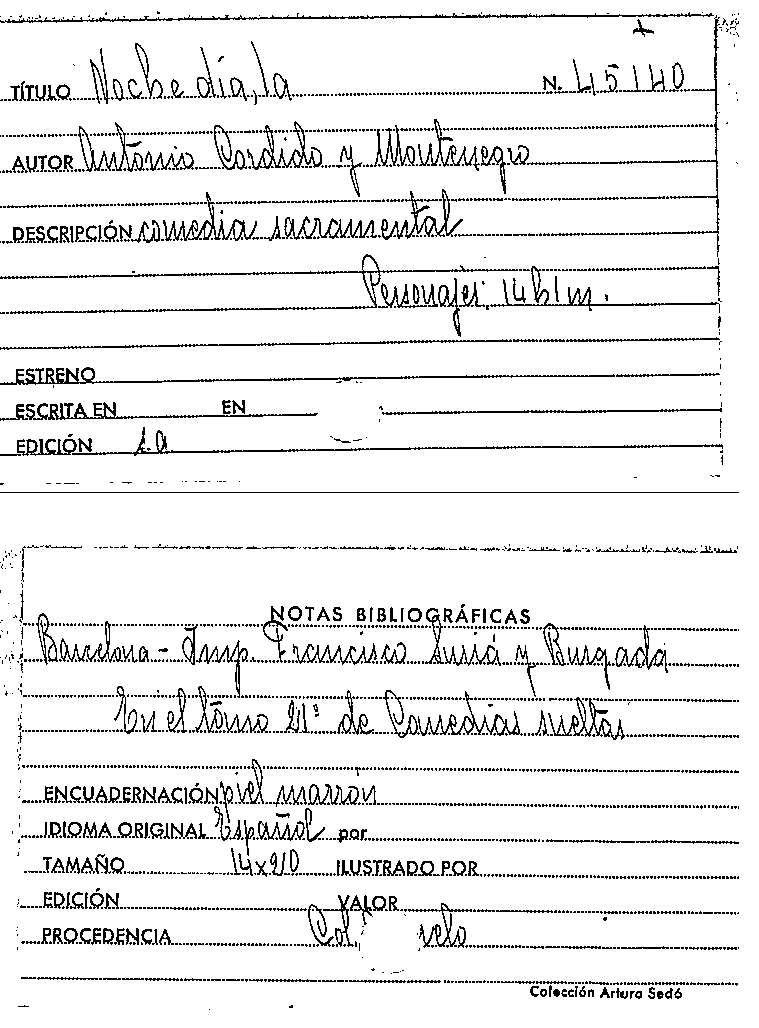 TÍTULO Noche día, la N. 45140
AUTOR Antonio Cordido y Montenegro
DESCRIPCIÓN comedia sacramental
Personajes: 14 h 1 m.
ESTRENO
ESCRITA EN EN
EDICIÓN s.a
NOTAS BIBLIOGRÁFICAS
Barcelona - Imp. Francisco Suriá y Burgada
En el tomo 21º de Comedias sueltas
ENCUADERNACIÓN piel marrón
IDIOMA ORIGINAL Español por
TAMAÑO 14x20 ILUSTRADO POR
EDICIÓN VALOR
PROCEDENCIA Col.
Colección Arturo Sedó